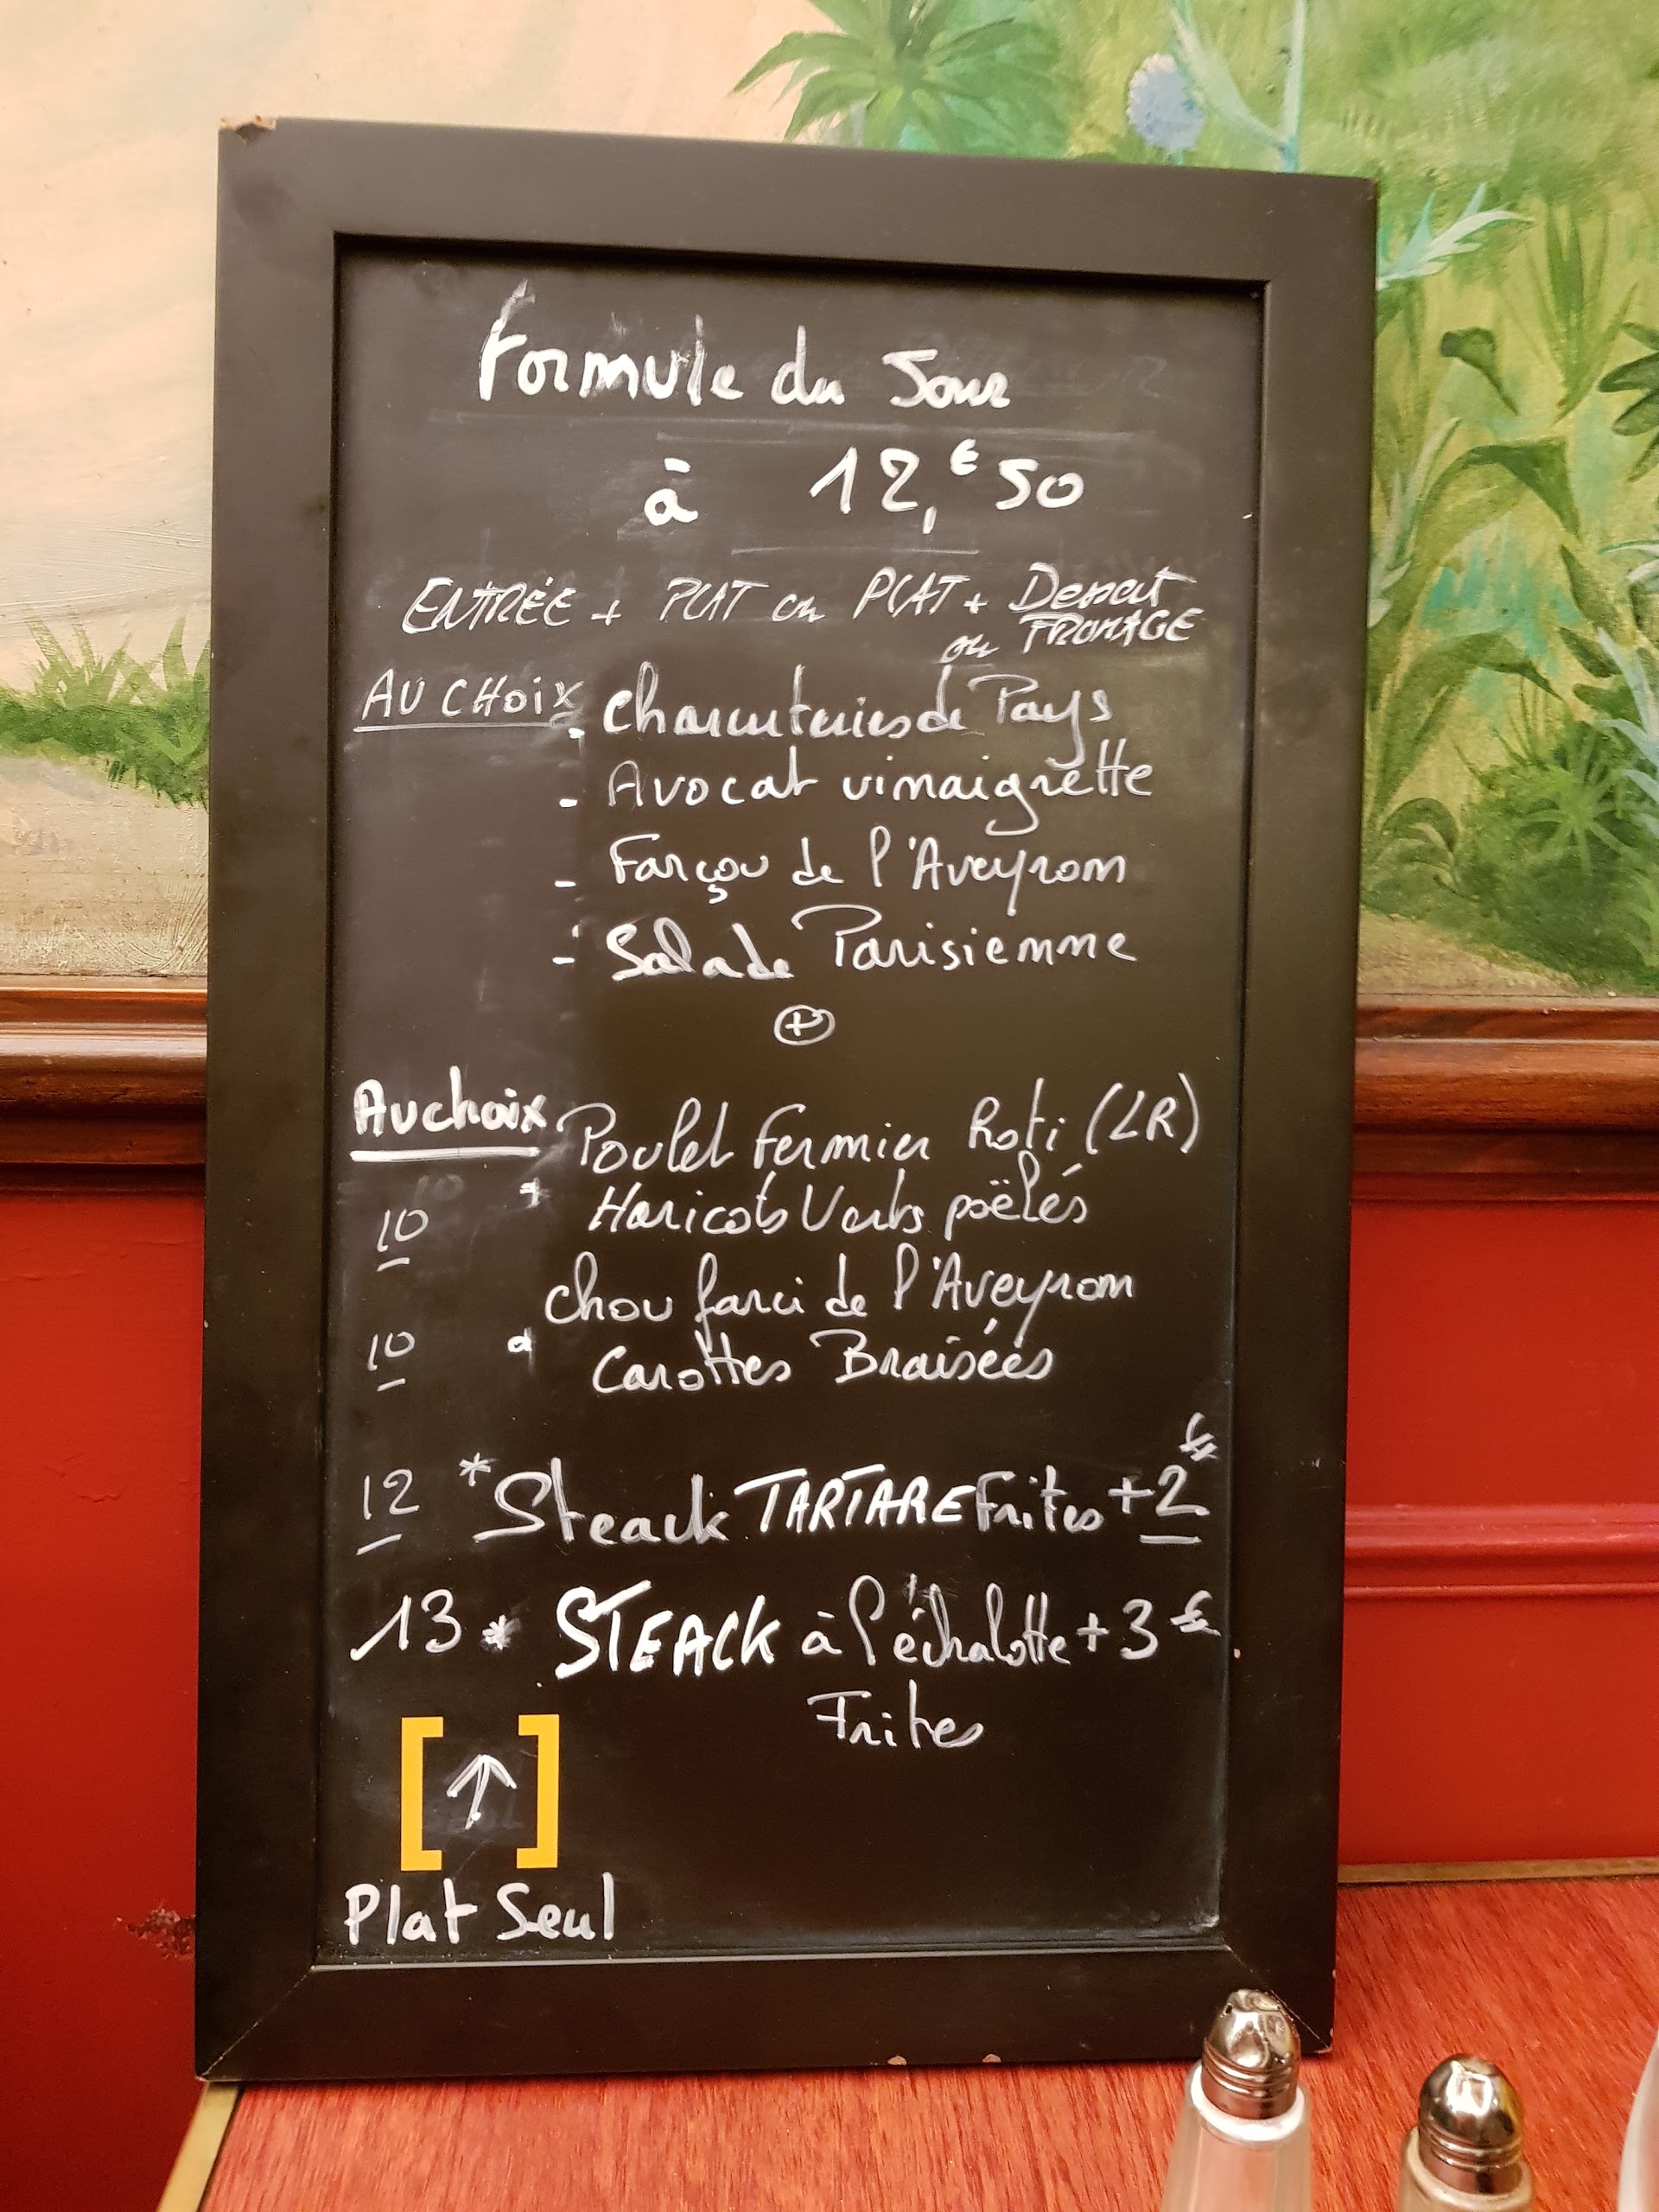 Formule du Jour
à 12,€50
ENTRÉE + PLAT ou PLAT + Dessert
ou FROMAGE
AU CHOIX - Charcuteries de Pays
- Avocat vinaigrette
- Farçou de l'Aveyron
- Salade Parisienne
+
Au choix Poulet Fermier Roti (LR)
10 * Haricots Verts poëlés
chou farci de l'Aveyron
10 * Carottes Braisées
12 * Steack TARTARE Frites + 2€
13 * STEACK à l'échalotte + 3€
Frites
[↑]
Plat Seul